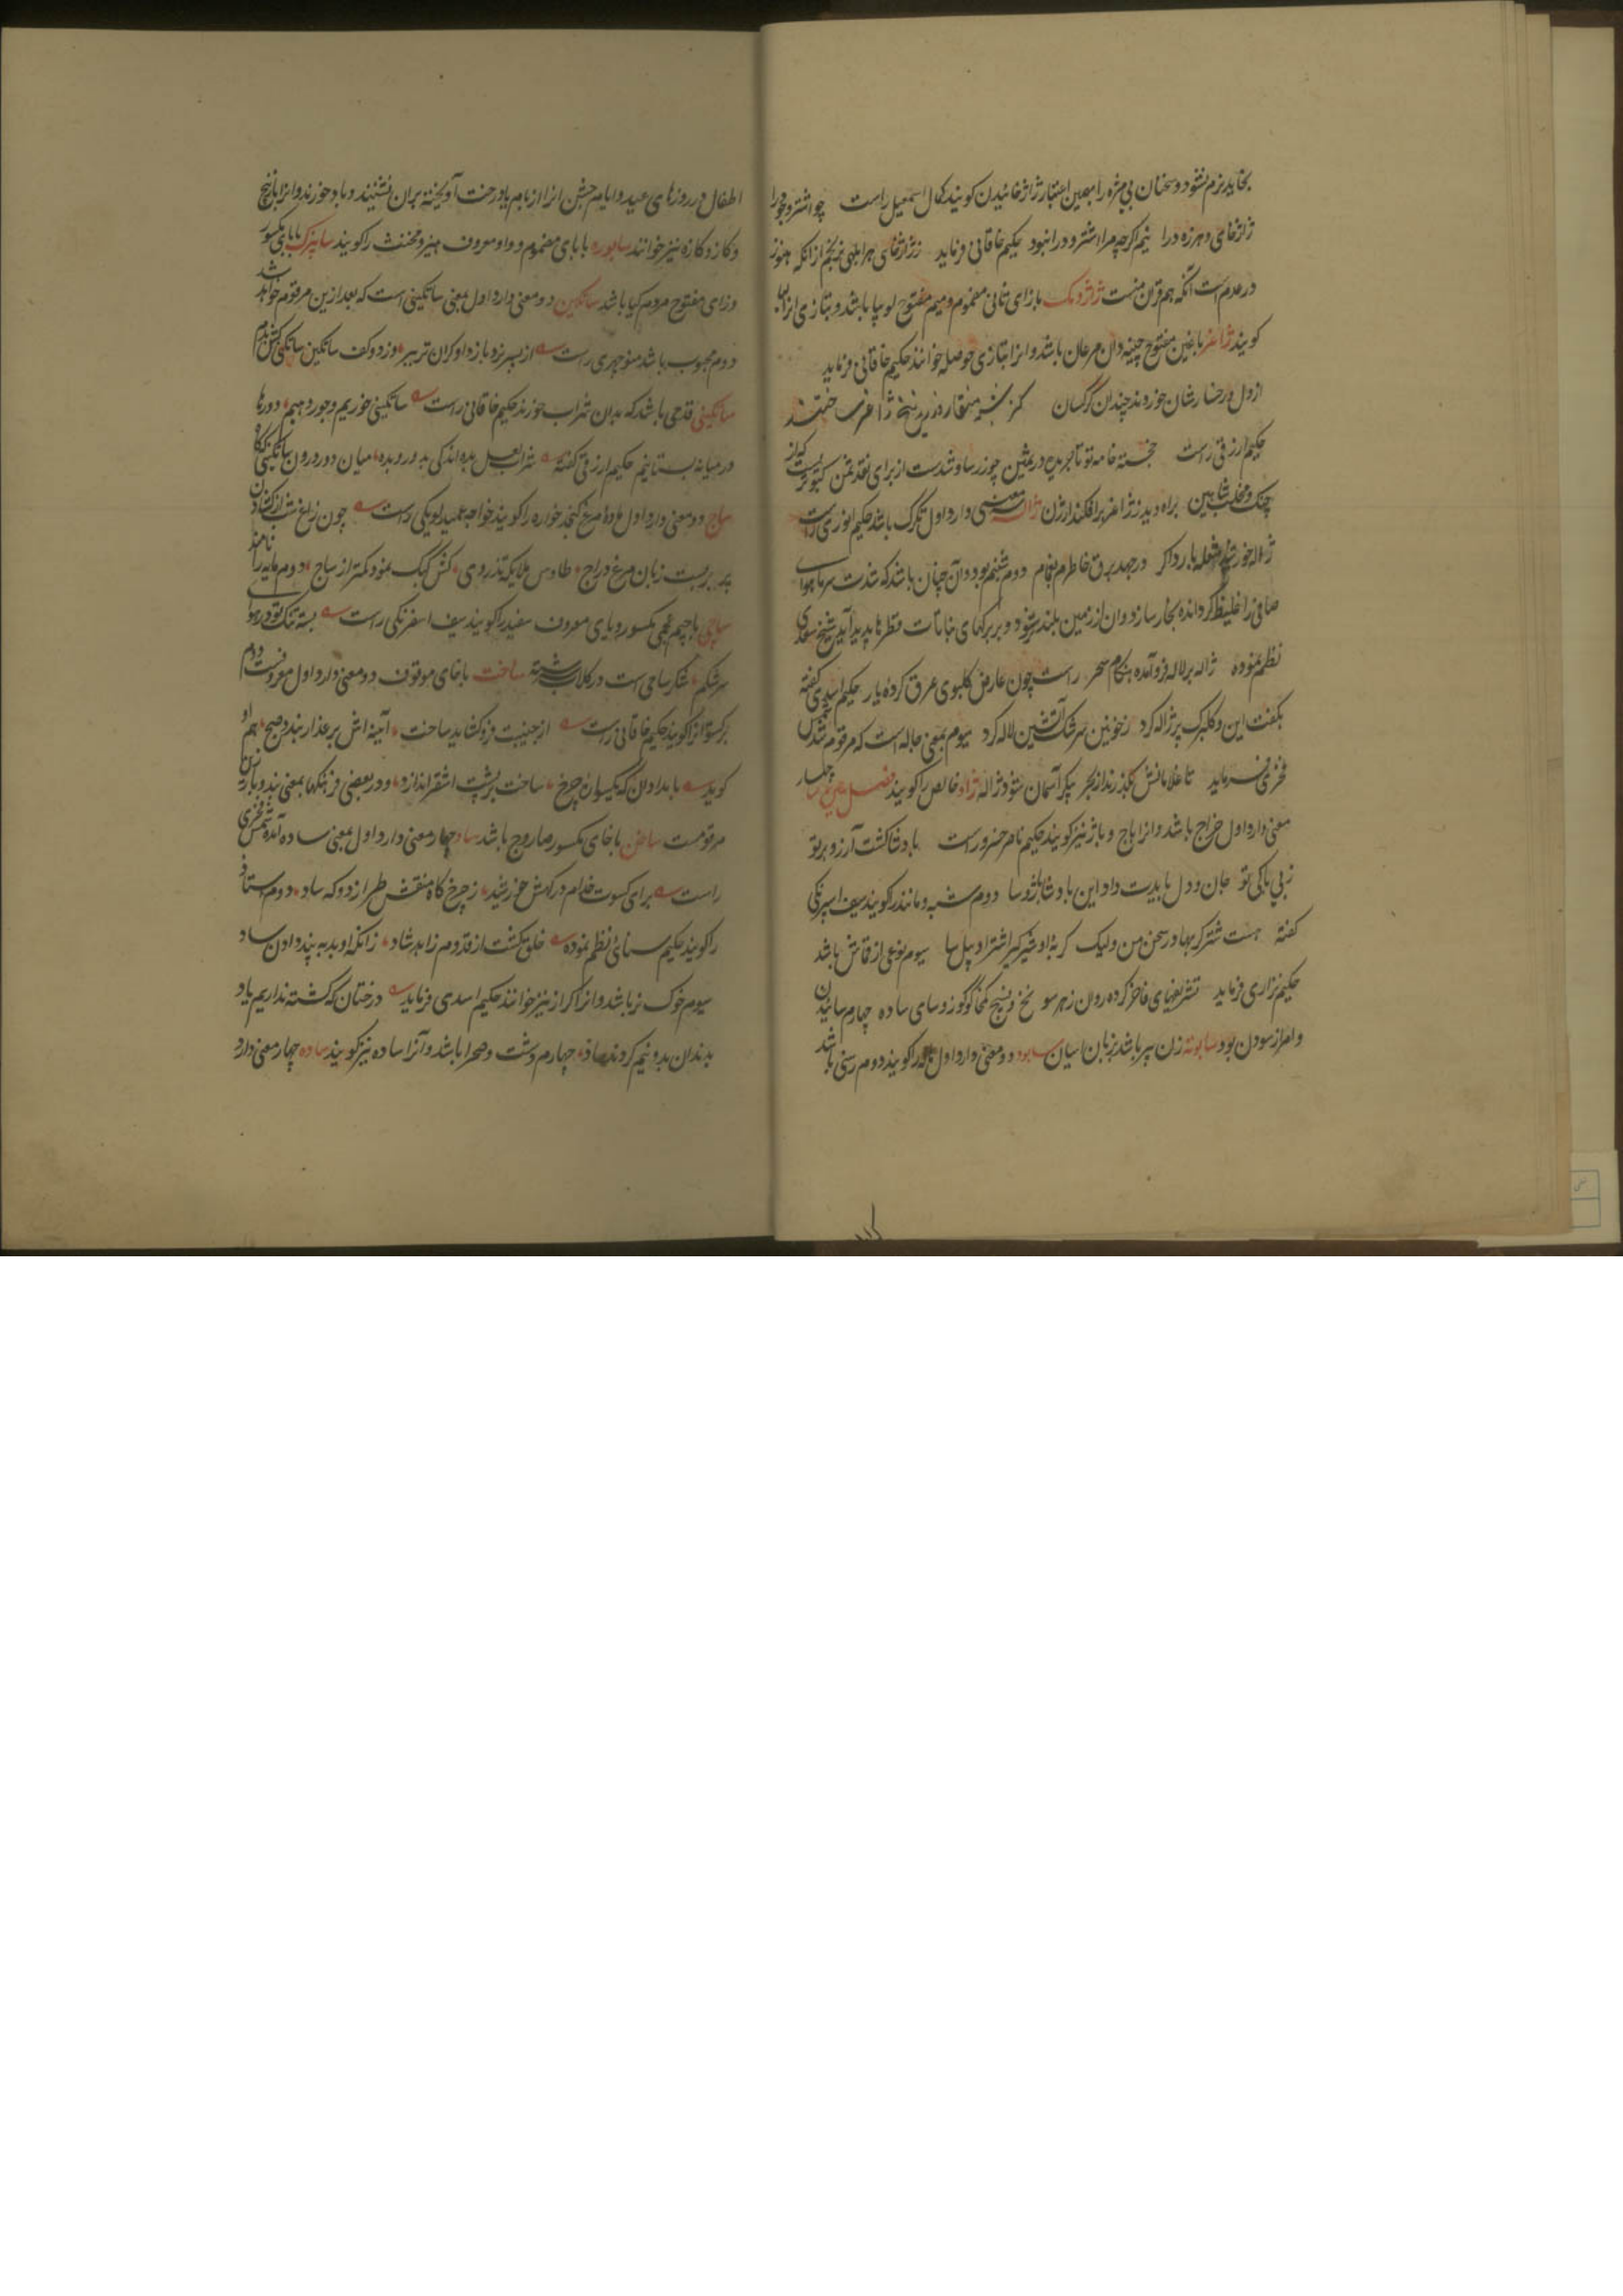 بخاید نرم نشود و سخنان بی مزه را بدین اعتبار ژاژ خائیدن گویند کمال اسمعیل راست چو اشتر و خود را
ژاژخای و هرزه درا نیم اگرچه مرا اشتر و درا نبود حکیم خاقانی فرماید ز ژاژخای هر ابلهی نرنجم ازانکه هنوز
در عدم است آنکه هم قران منست ژاژومک بازای ثانی مضموم و میم مفتوح لوبیا باشد و بتازی انرا
گویند ژاغر باغین مفتوح چینه دان مرغان باشد و انرا بتازی حوصله خوانند حکیم خاقانی فرماید
از دل و رخسارشان خوردند چندان کرکسان کز
حکیم ازرقی راست خجسته خامه تو تاجریده در یمین چو زر ساو شدست از برای نقد ثمن
چنگ و مخلب شاهین براه دید ز ژاغر برافکند ارزن ژاله سه معنی دارد اول تگرگ باشد حکیم انوری راست
ژاله خورشید شعله بارد اگر درجهد برق خاطرم بغمام دوم شبنم بود و آن چنان باشد که شدت سرما هوای
صافی را غلیظ گردانده بخار سازد و ان از زمین بلند شود و بر برگهای نباتات قطرها پدید آید شیخ سعدی
نظم نموده ژاله بر لاله فرو آمده هنگام سحر راست چون عارض گلبوی عرق کرده یار حکیم اسدی گفته
بگفت این و گلبرگ پر ژاله کرد ز خونین سرشک آتشین لاله کرد سیوم بمعنی جاله است که مرقوم شد شمس
فخری فرماید تا غلامانش بگذرند از بحر پیکر آسمان شود ژاله ژاو خالص را گویند فصل سین سا چهار
معنی دارد اول خراج باشد و انرا باج و باژ نیز گویند حکیم ناصر خسرو راست پادشا گشت آرزو بر تو
ز بی باکی تو جان و دل بایدت داد این پادشا را باژ و سا دوم شبه و مانند را گویند سیف اسپرنگی
گفته هست شتر گربها در سخن من ولیک گربه او شیرگیر اشتر او پیل سا سیوم نوعی از قماش باشد
حکیم نزاری فرماید تشریفهای فاخر کرده روان ز هر سو نخ و نسیج کمخا گوگوز و سای ساده چهارم سائیدن
و امر از سودن بود سابوته زن پیر باشد بزبان اسیان سابود دو معنی دارد اول هاله را گویند دوم رسنی باشد
اطفال در روزهای عید و ایام جشن انرا از بام یا درخت آویخته بران نشینند و باد خورند و انرا بازپیچ
و کاز و کازه نیز خوانند سابوره بابای مضموم و واو معروف هیز و مخنث را گویند سابیزک بابای مکسور
و زای مفتوح مردم گیا باشد ساتگین دو معنی دارد اول بمعنی ساتگینی است که بعد ازین مرقوم خواهد شد
دوم محبوب باشد منوچهری راست
ساتگینی قدحی باشد که بدان شراب خورند حکیم خاقانی راست ساتگینی خوریم و جوردهیم دورها
در میانه بستانیم حکیم ازرقی گفته شراب لعل بده اندکی بدور و بده میان دور درون ساتگینی گاه
ساج دو معنی دارد اول مرغ کنجد خواره را گویند خواجه عمید لویکی راست چون زاغ شب
پر بربست زبان مرغ دراج طاوس ملایکه تذروی کش کبک بنمود کمتر از ساج دوم
ساچی باجیم عجمی مکسور و یای معروف سفید را گویند سیف اسفرنگی راست بسته تنگ تو در هوای
سرشکم شکر ساچی است در گلاب سرشته ساخت باخای موقوف دو معنی دارد اول معروفست دوم
برگستوان را گویند حکیم خاقانی راست از جنیبت فروگشاید ساخت آینه اش بر عذار بندد صبح هم او
گوید بامدادان که یکسواره چرخ ساخت بر پشت اشقر اندازد و در بعضی فرهنگها بمعنی بند
مرقومست ساخن باخای مکسور صاروج باشد ساد چهار معنی دارد اول بمعنی ساده آمده شمس فخری
راست برای کسوت خدام درگهش خورشید ز چرخ گاه منقش طرازد و گه ساد دوم استاد
را گویند حکیم سنائی نظم نموده خلق گشت از قدوم زاهد شاد زانکه او بد به پند دادن ساد
سیوم خوک نر باشد و انرا گراز نیز خوانند حکیم اسدی فرماید درختان که کشته نداریم یاد
بدندان بدو نیم کردند ساد چهارم دشت و صحرا باشد و آنرا ساده نیز گویند ساده چهار معنی دارد